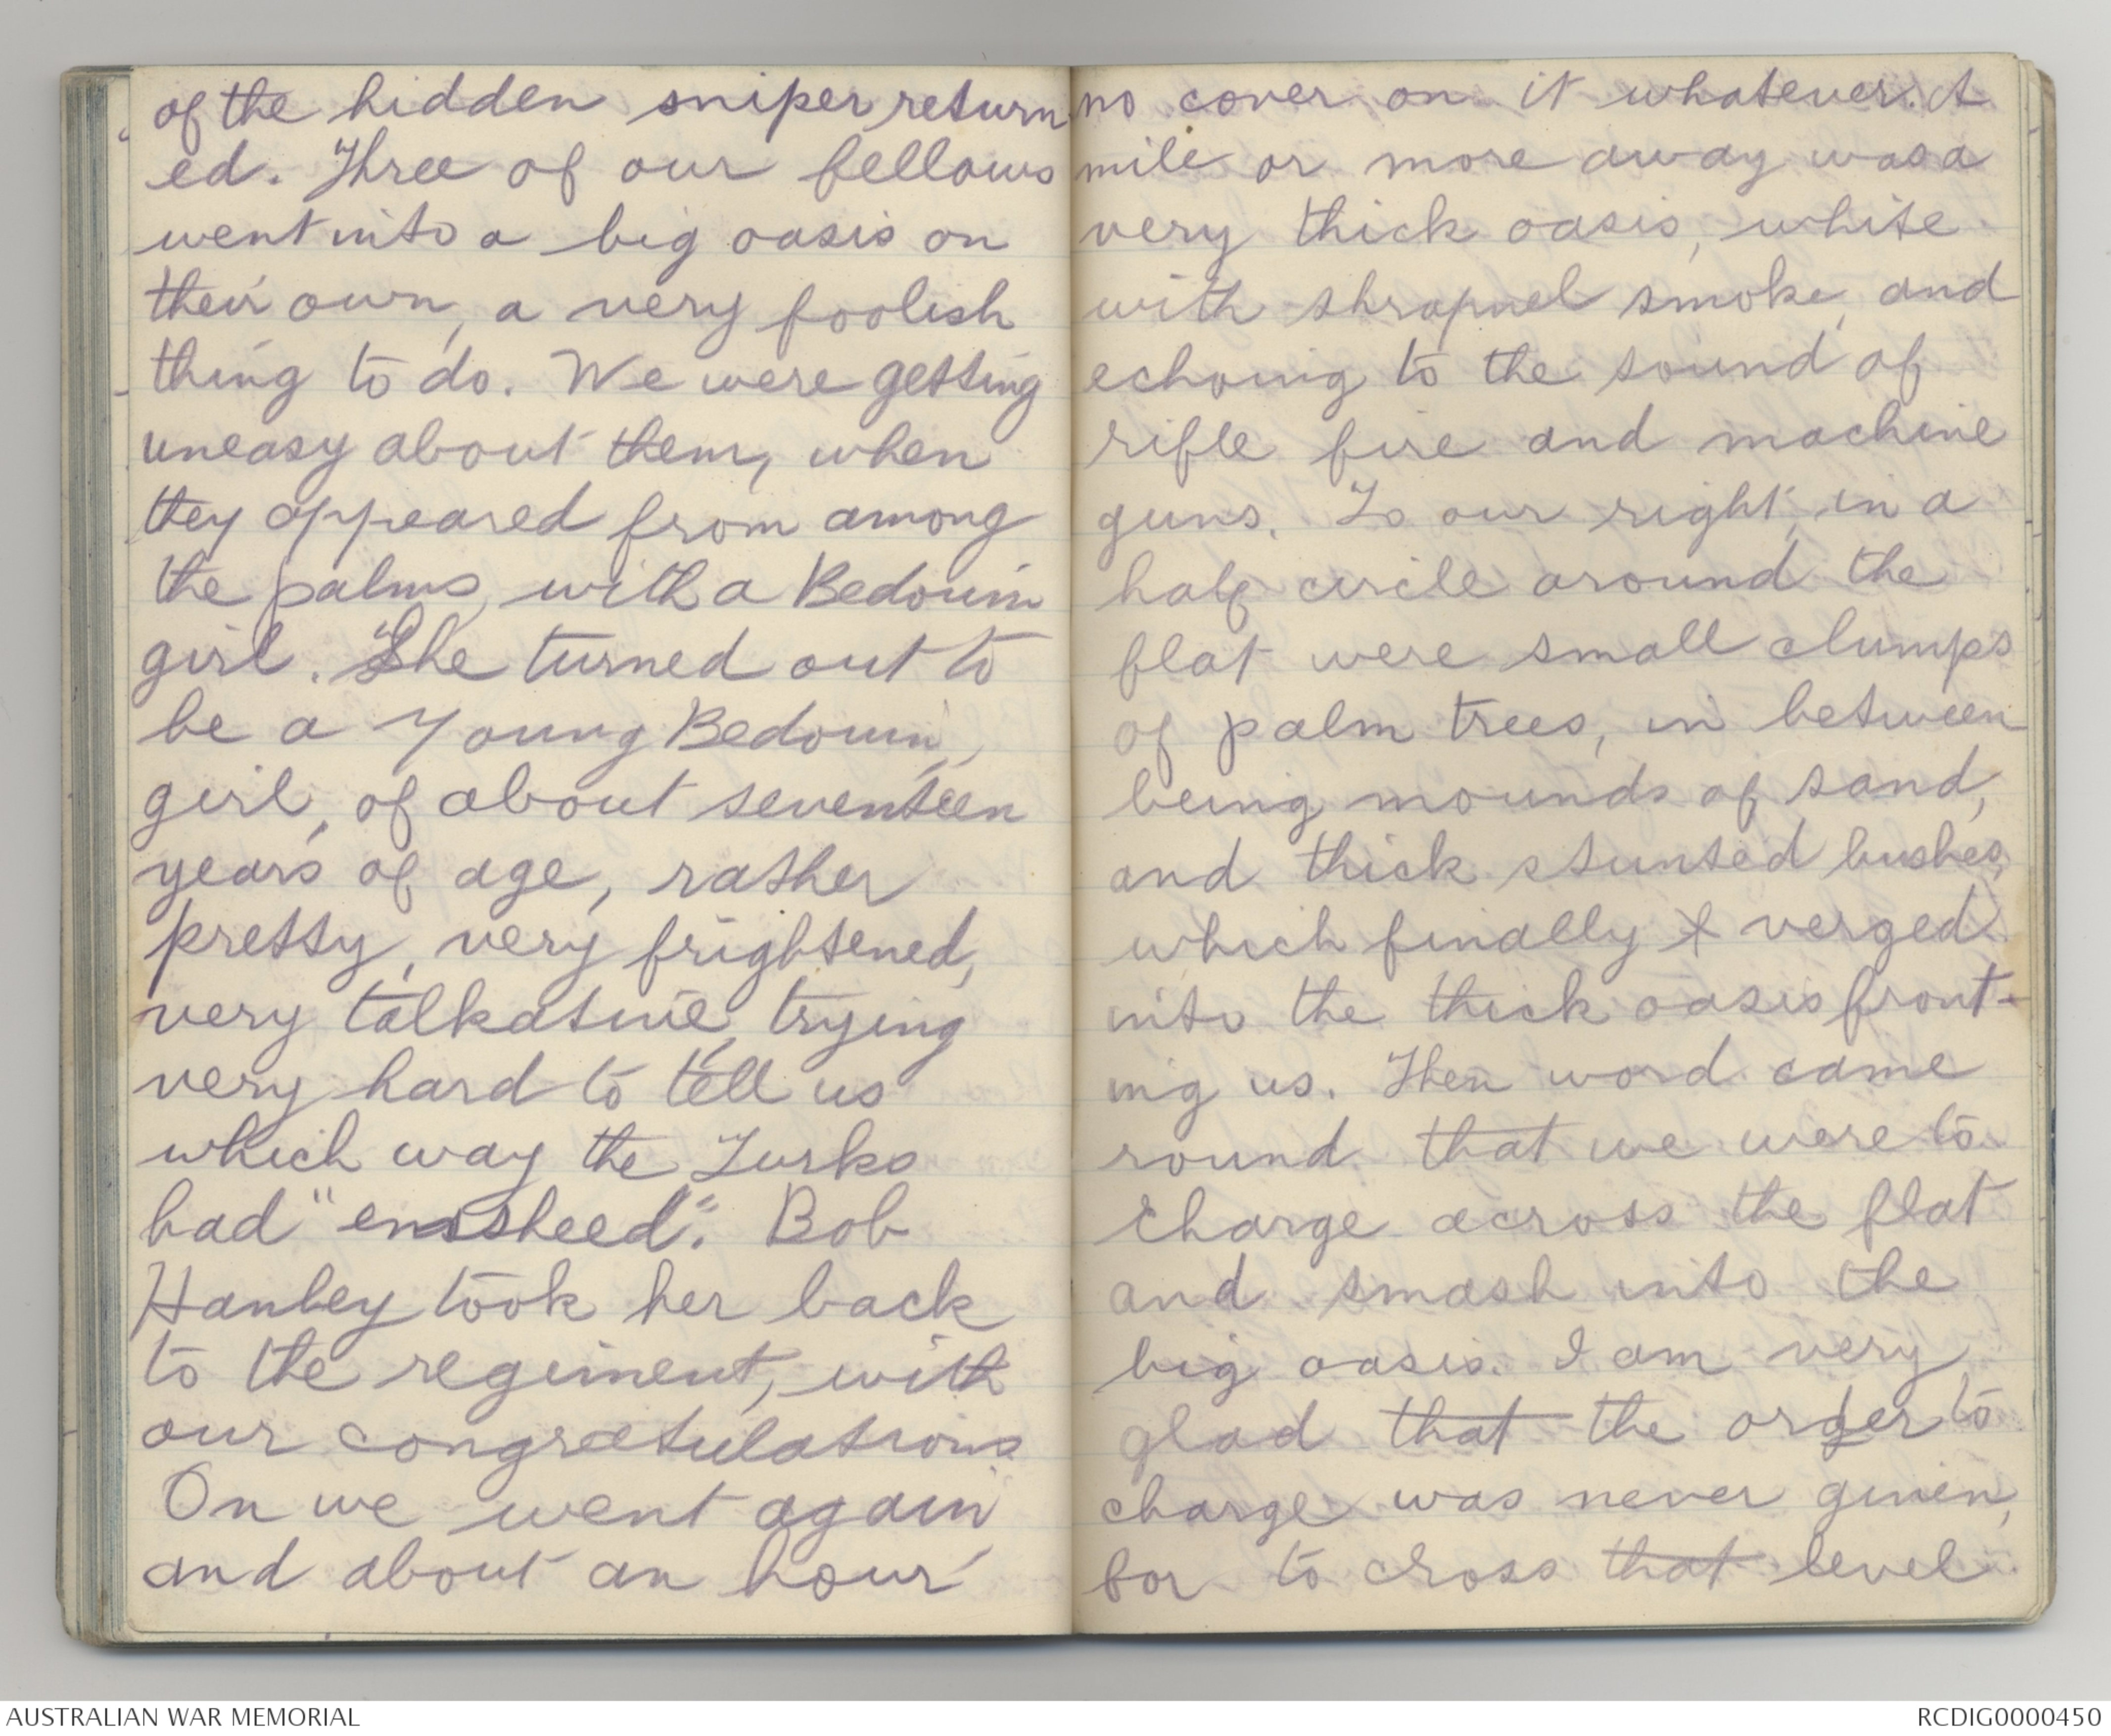 of the hidden sniper return
ed. Three of our fellows
went into a big oasis on
their own, a very foolish
thing to do. We were getting
uneasy about them, when
they appeared from among
the palms, with a Bedouin
girl. She turned out to
be a Young Bedouin,
girl, of about seventeen
years of age, rather
pretty, very frightened,
very talkative, trying
very hard to tell us
which way the Turks
had "emsheed". Bob
Hanley took her back
to the regiment, with
our congratulations
On we went again
and about an hour
no cover on it whatever. A
mile or more away was a
very thick oasis, white
with shrapnel smoke, and
echoing to the sound of
rifle fire and machine
guns. To our right, in a
half circle around the
flat were small clumps
of palm trees, in between
being mounds of sand,
and thick stunted bushes,
which finally verged
into the thick oasis front-
ing us. Then word came
round that we were to
charge across the flat
and smash into the
big oasis. I am very
glad that the order to
charge was never given,
for to cross that level
AUSTRALIAN WAR MEMORIAL
RCDIG0000450